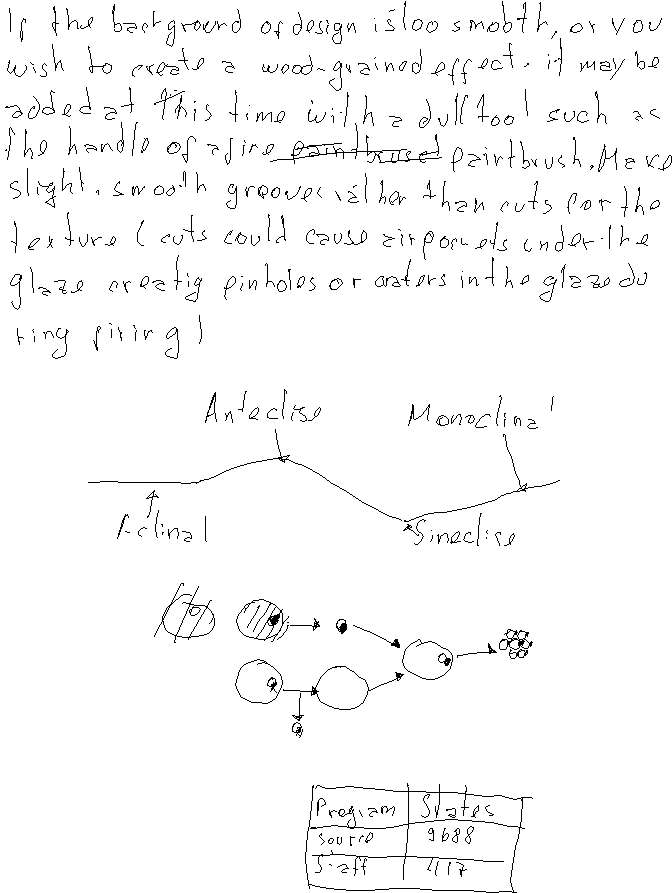 If the background of design is too smooth, or you
wish to create a wood-grained effect. it may be
added at this time with a dull tool such as
the handle of a fine paintbrused paintbrush. Make
slight. smooth grooves rather than cuts for the
texture ( cuts could cause airpockets under the
glaze creatig pinholes or craters in the glaze du
ring firing )
Anteclise Monoclinal
Aclinal Sineclise
Program States
source 9688
Staff 417